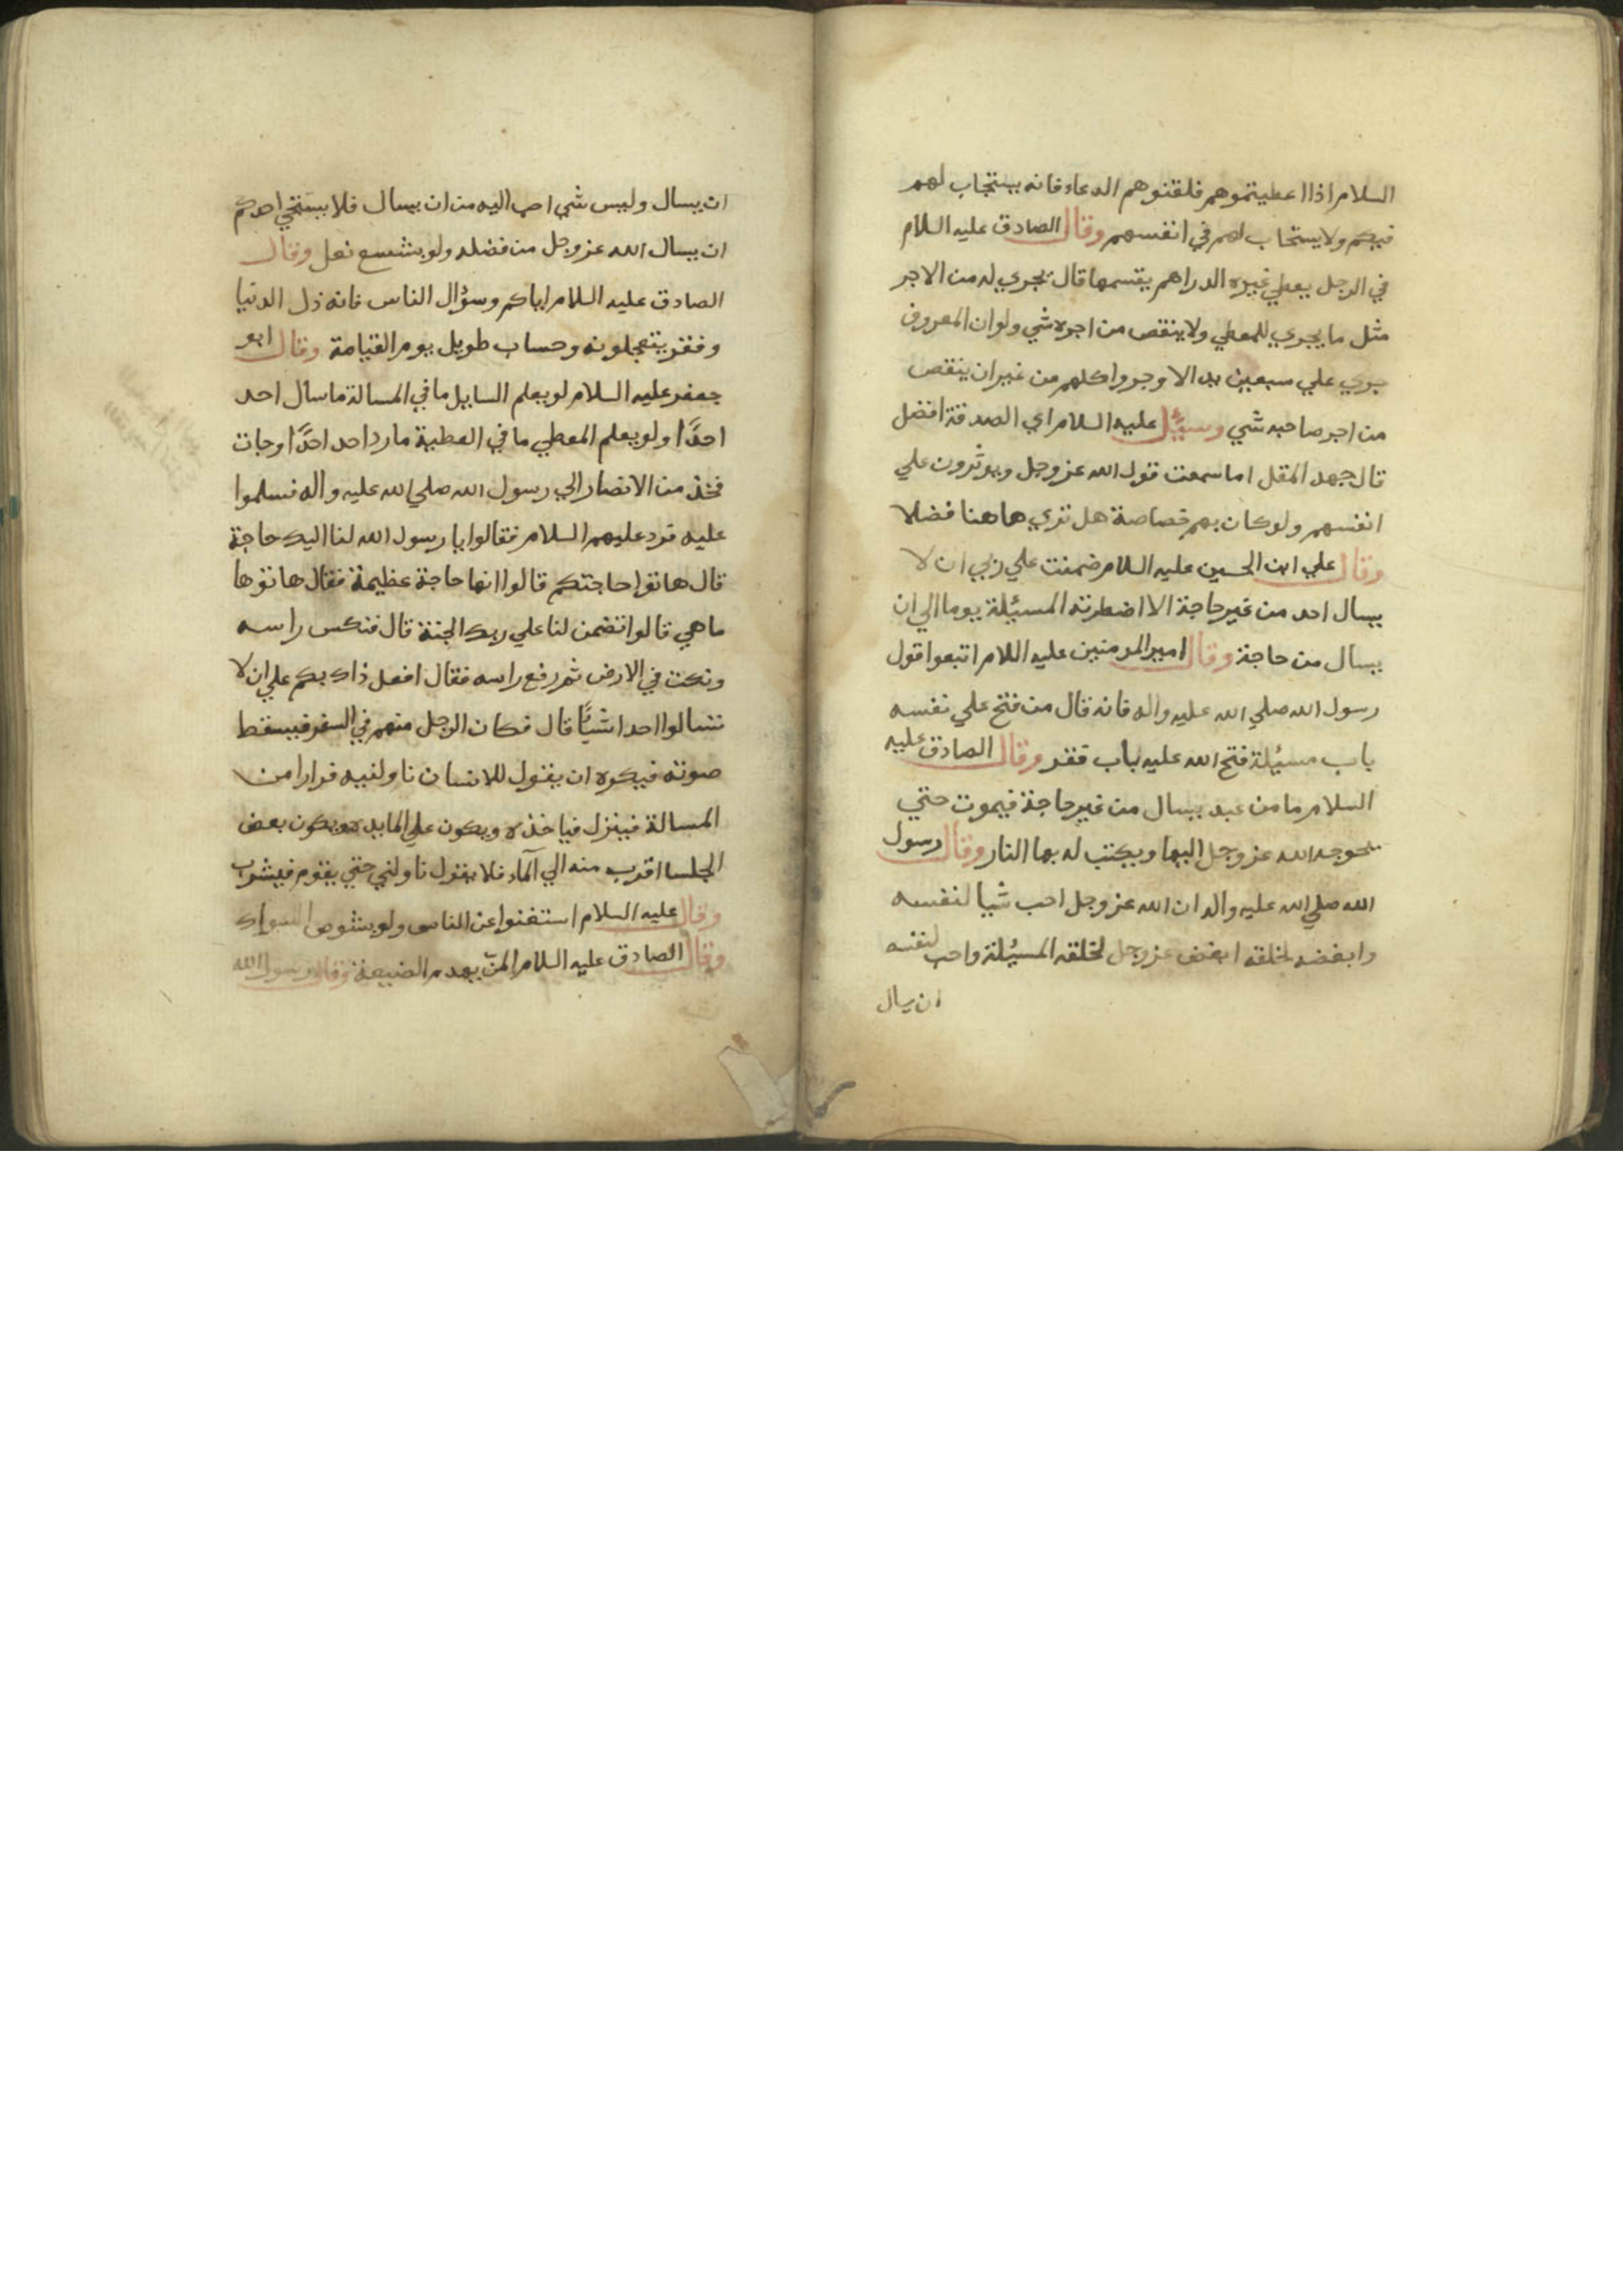 السلام اذا اعطيتموهم فلقنوهم الدعاء فانه يستجاب لهم
فيكم ولا يستجاب لهم في انفسهم وقال الصادق عليه السلام
في الرجل يعطي غيره الدراهم يقسمها قال يجري له من الاجر
مثل ما يجري للمعطي ولا ينقص من اجره شي ولو ان المعروف
جري علي سبعين يد الاوجروا كلهم من غير ان ينقص
من اجر صاحبه شي وسئل عليه السلام اي الصدقة افضل
قال جهد المقل اما سمعت قول الله عز وجل ويوثرون علي
انفسهم ولو كان بهم خصاصة هل تري هاهنا فضلا
وقال علي ابن الحسين عليه السلام ضمنت علي ربي ان لا
يسال احد من غير حاجة الا اضطرته المسئلة يوما الي ان
يسال من حاجة وقال امير المومنين عليه اللام اتبعوا قول
رسول الله صلي الله عليه واله فانه قال من فتح علي نفسه
باب مسئلة فتح الله عليه باب فقر وقال الصادق عليه
السلام ما من عبد يسال من غير حاجة فيموت حتي
يحوجه الله عز وجل اليها ويكتب له بها النار وقال رسول
الله صلي الله عليه واله ان الله عز وجل احب شيا لنفسه
وابغضه لخلقه ابغض عز وجل لخلقه المسئلة واحب لنفسه
ان يسال
ان يسال وليس شي احب اليه من ان يسال فلا يستحي احدكم
ان يسال الله عز وجل من فضله ولو بشسع نعل وقال
الصادق عليه السلام اياكم وسؤال الناس فانه ذل الدنيا
وفقر يتعجلونه وحساب طويل يوم القيامة وقال ابو
جعفر عليه السلام لو يعلم السايل ما في المسالة ما سال احد
احدًا ولو يعلم المعطي ما في العطية ما رد احد احدًا وجات
فخذ من الانصار الي رسول الله صلي الله عليه واله فسلموا
عليه فرد عليهم السلام فقالوا يا رسول الله لنا اليك حاجة
قال هاتوا حاجتكم قالوا انها حاجة عظيمة فقال هاتوها
ما هي قالوا تضمن لنا علي ربك الجنة قال فنكس راسه
ونكت في الارض ثم رفع راسه فقال افعل ذاك بكم علي ان لا
تسالوا احدا شيًا قال فكان الرجل منهم في السفر فيسقط
صوته فيكره ان يقول للانسان ناولنيه فرارا من
المسالة فينزل فياخذه ويكون علي المايدة ويكون بعض
الجلسا اقرب منه الي الماء فلا يقول ناولني حتي يقوم فيشرب
وقال عليه السلام استغنوا عن الناس ولو بشوص السواك
وقال الصادق عليه السلام المنّ يهدم الضيعة وقال رسول الله